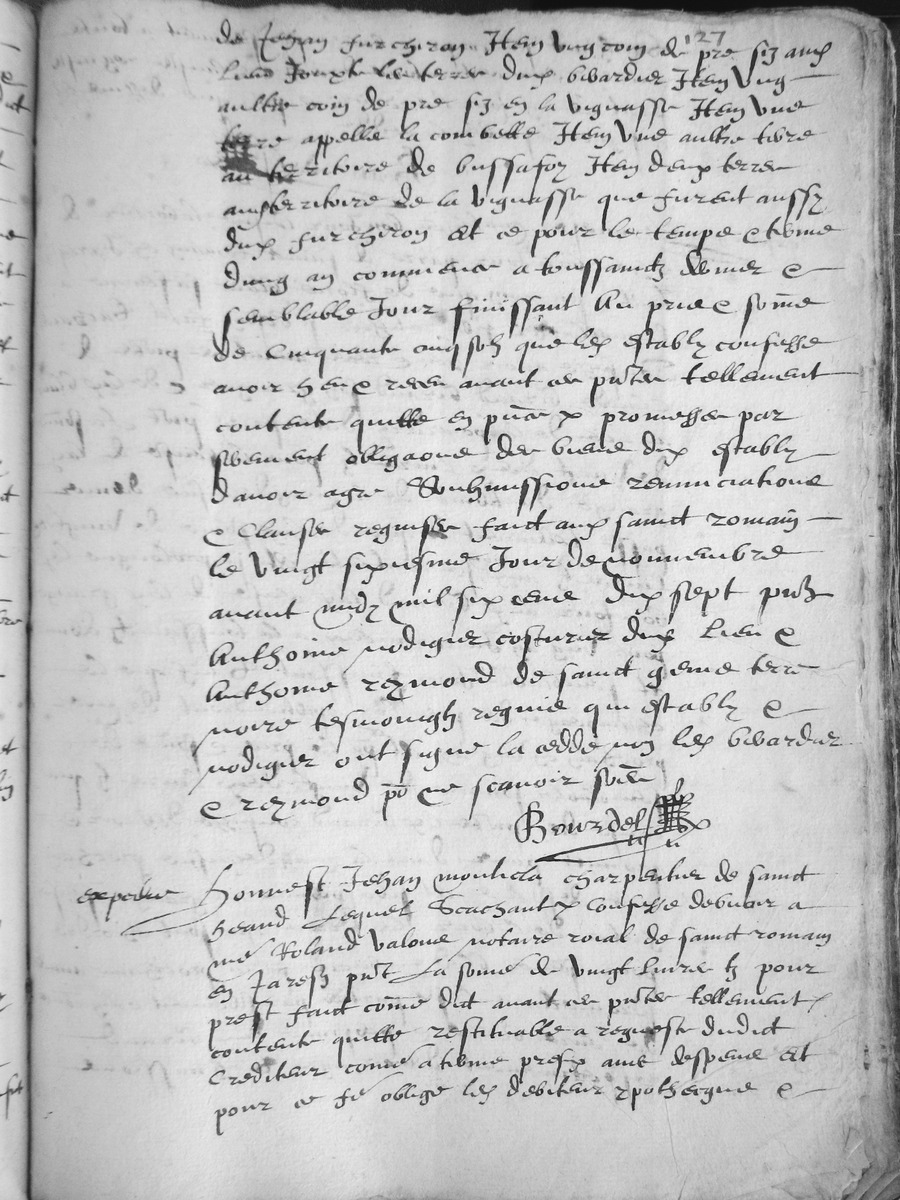 127
de Jehan furchiron Item ung coin de pre siz aud
lieu Jouxte les terres dud bverdier Item ung
aultre coin de pre siz en la vignasse Item une
terre appelle la combette Item une aultre terre
au territoire de bussafoy Item deux terres
aud territoire de la vignasse que furent aussy
dud furchiron Et ce pour le temps & terme
dung an commence a toussainctz dernier &
semblable Jour finissant Au pris & some
de Cinquante cinq solz que led estably confesse
avoir heu & receu avant ces pntes tellement
contente quitte en pnce & promesse par
serement obligaons des biens dud estably
davoir agre Soubmissions renunciations
& Clauses requises faict aud sainct romain
le vingt sixiesme Jour de novembre
avant midy mil six cens dix sept pntz
Anthoine nodigier costurier dud lieu &
Anthoine reymond de sainct genis terre
noire tesmoingtz requis qui estably &
nodigier ont signe la cedde non led bverdier
& reymond po ne scavoir some
Bourdel
expedie Honnest Jehan monticla charpentier de sainct
heand Lequel Scachant & Confesse debvoir a
me Roland valous notaire roial de sainct romain
en Jarestz pnt La some de vingt livres tz pour
prest faict come dict avant ces pntes tellement
contente quitte restituable a requeste dudict
Crediteur come a terme prefix avec despens Et
pour ce fe oblige led debiteur ypothecque &